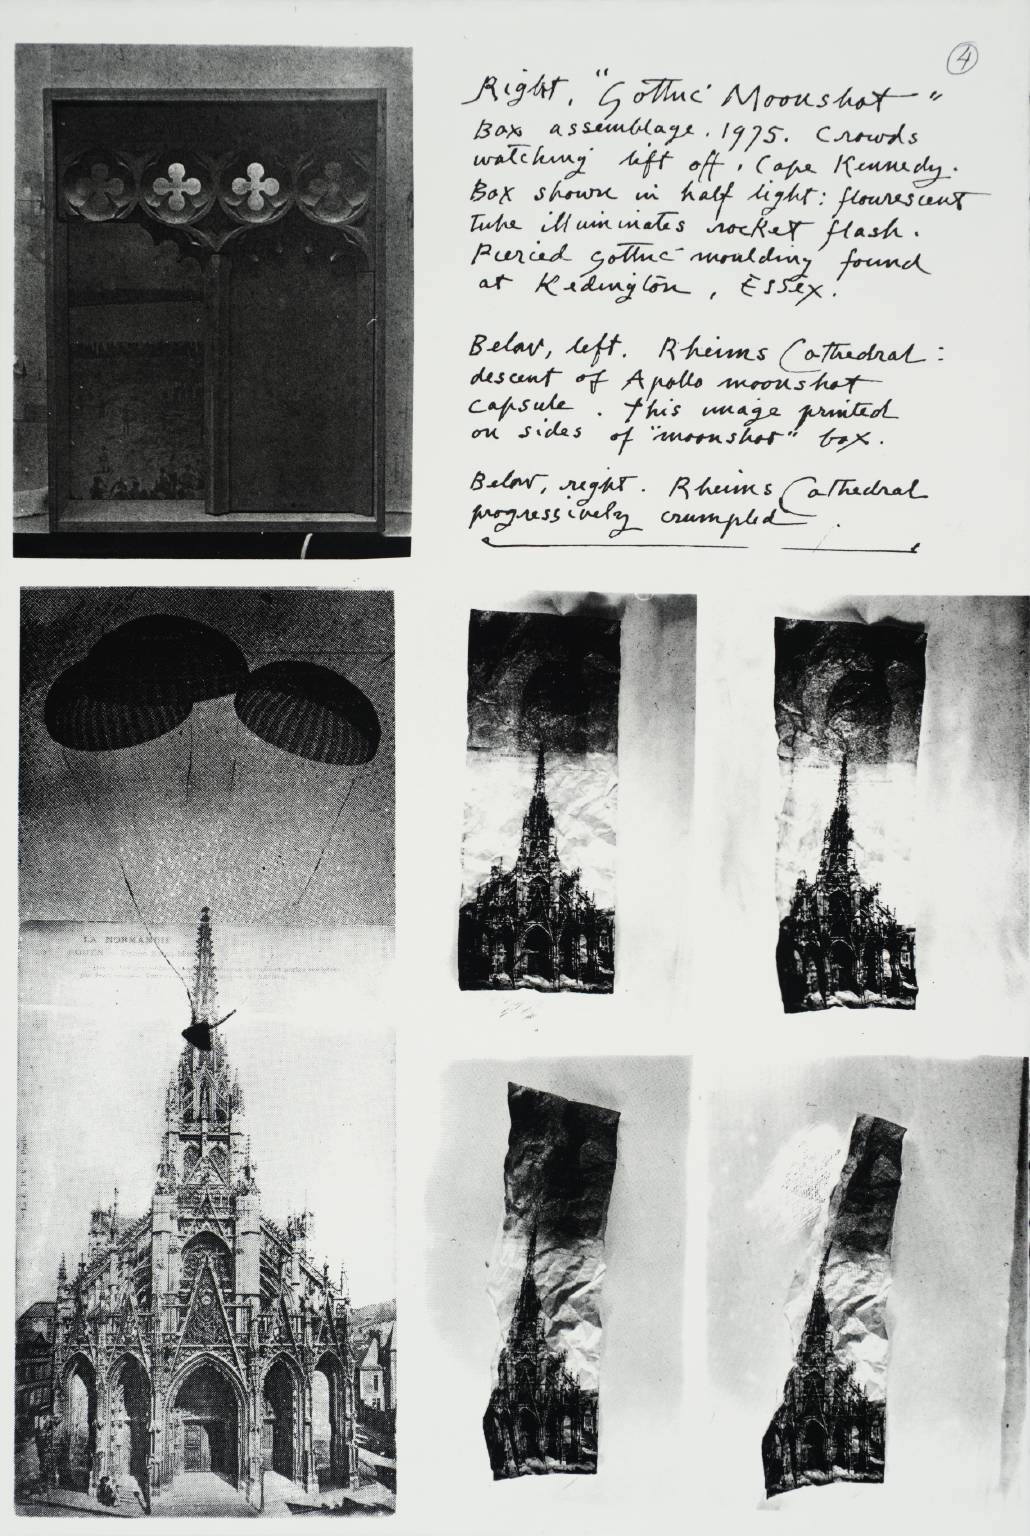 4
Right, "Gothic Moonshot"
Box assemblage. 1975. Crowds
watching lift off, Cape Kennedy.
Box shown in half light: flourescent
tube illuminates rocket flash.
Pierced gothic moulding found
at Kedington, Essex.
Below, left. Rheims Cathedral:
descent of Apollo moonshot
capsule. This image printed
on sides of "moonshot" box.
Below, right. Rheims Cathedral
progressively crumpled.
LA NORMANDIE
ROUEN